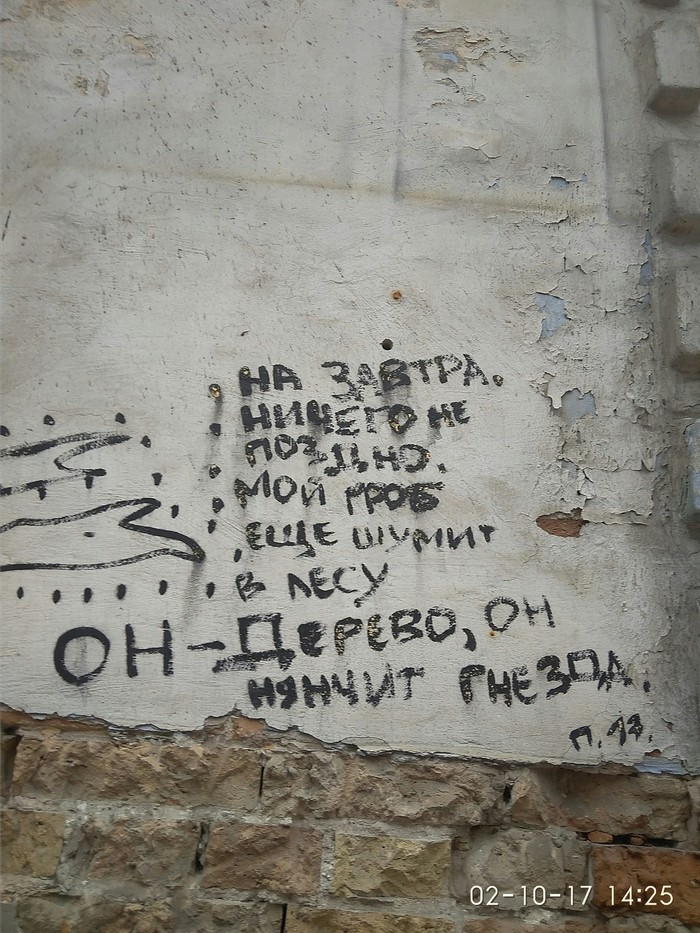 НА ЗАВТРА.
НИЧЕГО НЕ
ПОЗДНО.
МОЙ ГРОБ
ЕЩЕ ШУМИТ
В ЛЕСУ
ОН-ДЕРЕВО, ОН
НЯНЧИТ ГНЕЗДА.
П. 13.
02-10-17 14:25